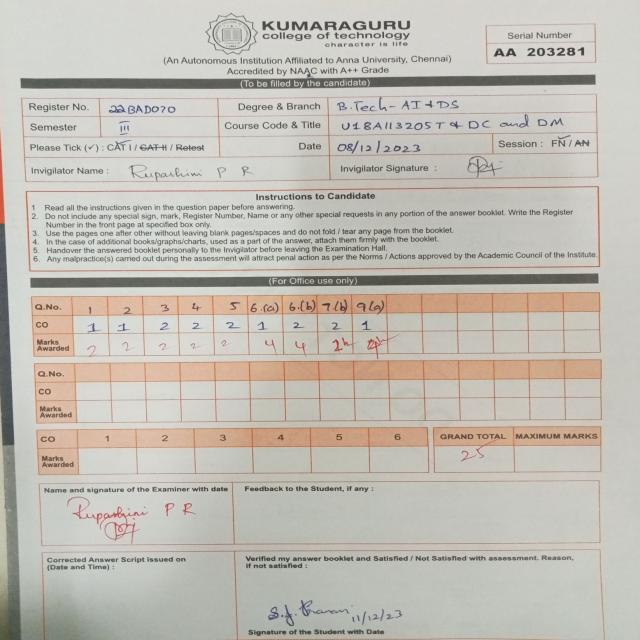 KUMARAGURU
college of technology
character is life
(An Autonomous Institution Affiliated to Anna University, Chennai)
Accredited by NAAC with A++ Grade
Serial Number
AA 203281
(To be filled by the candidate)
Register No. 22BAD070 Degree & Branch B.Tech-AI&DS
Semester III Course Code & Title U18AI13205T & DC and DM
Please Tick (✓) : CAT I / CAT II / Retest Date 08/12/2023 Session : FN / AN
Invigilator Name : Rupashini P R Invigilator Signature :
Instructions to Candidate
1 Read all the instructions given in the question paper before answering.
2. Do not include any special sign, mark, Register Number, Name or any other special requests in any portion of the answer booklet. Write the Register
Number in the front page at specified box only.
3. Use the pages one after other without leaving blank pages/spaces and do not fold / tear any page from the booklet.
4. In the case of additional books/graphs/charts, used as a part of the answer, attach them firmly with the booklet.
5. Handover the answered booklet personally to the Invigilator before leaving the Examination Hall.
6. Any malpractice(s) carried out during the assessment will attract penal action as per the Norms / Actions approved by the Academic Council of the Institute.
(For Office use only)
Q.No. 1 2 3 4 5 6.(a) 6.(b) 7(b) 9(a)
CO 1 1 2 2 2 1 2 2 1
Marks Awarded 2 2 2 2 2 4 4
Q.No.
CO
Marks Awarded
CO 1 2 3 4 5 6 GRAND TOTAL MAXIMUM MARKS
Marks Awarded 25
Name and signature of the Examiner with date
Rupashini P R
Feedback to the Student, if any :
Corrected Answer Script issued on
(Date and Time) :
Verified my answer booklet and Satisfied / Not Satisfied with assessment. Reason,
if not satisfied :
11/12/23
Signature of the Student with Date